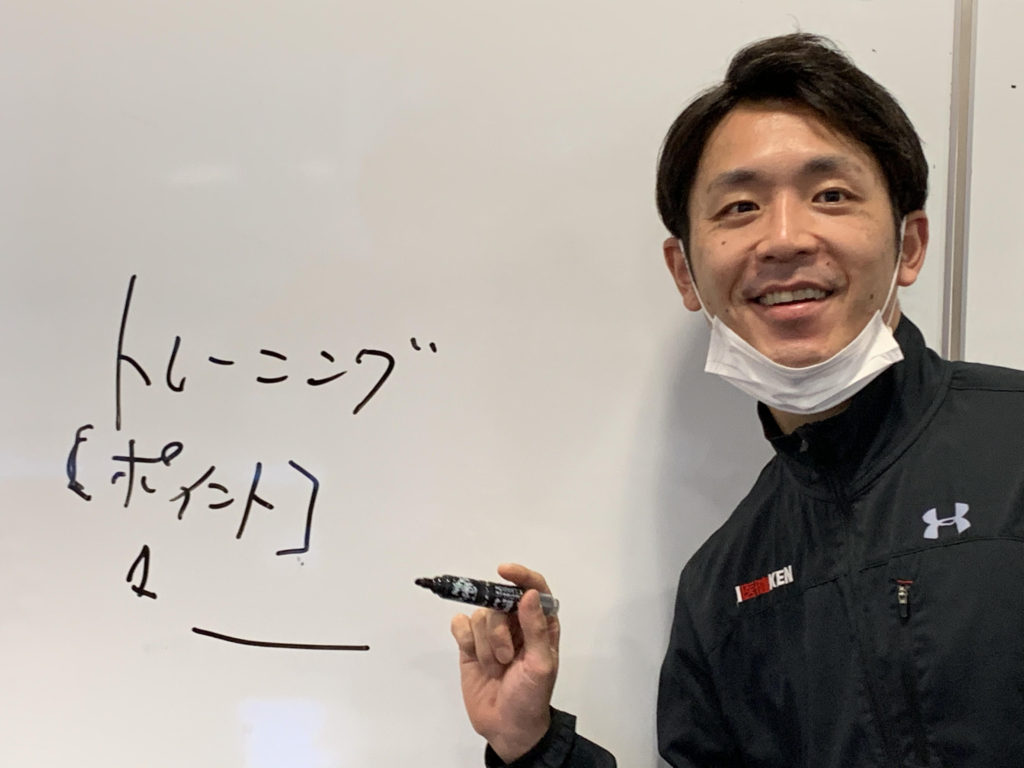 トレーニング
[ポイント]
1
KEN